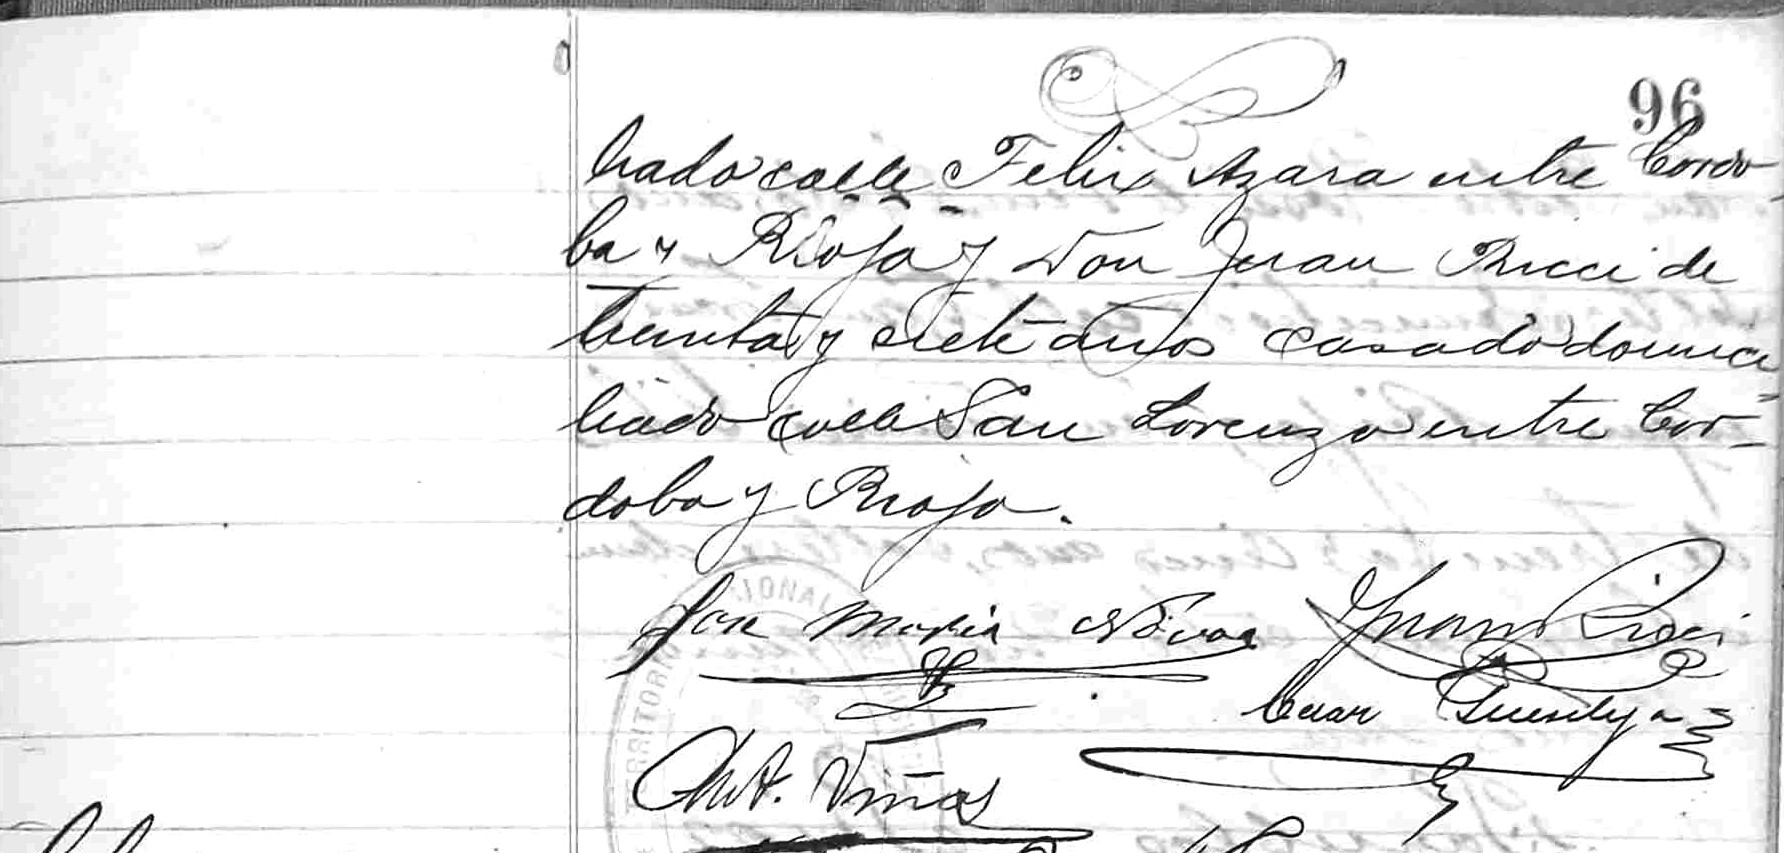 96
liado calle Felix Azara entre Cordo
ba y Rioja y Don Juan Ricci de
treinta y siete años casado domici
liado calle San Lorenzo entre Cor-
doba y Rioja.
Jose Maria Juan Ricci
Cesar
Ant. Viñas
TERRITORIO